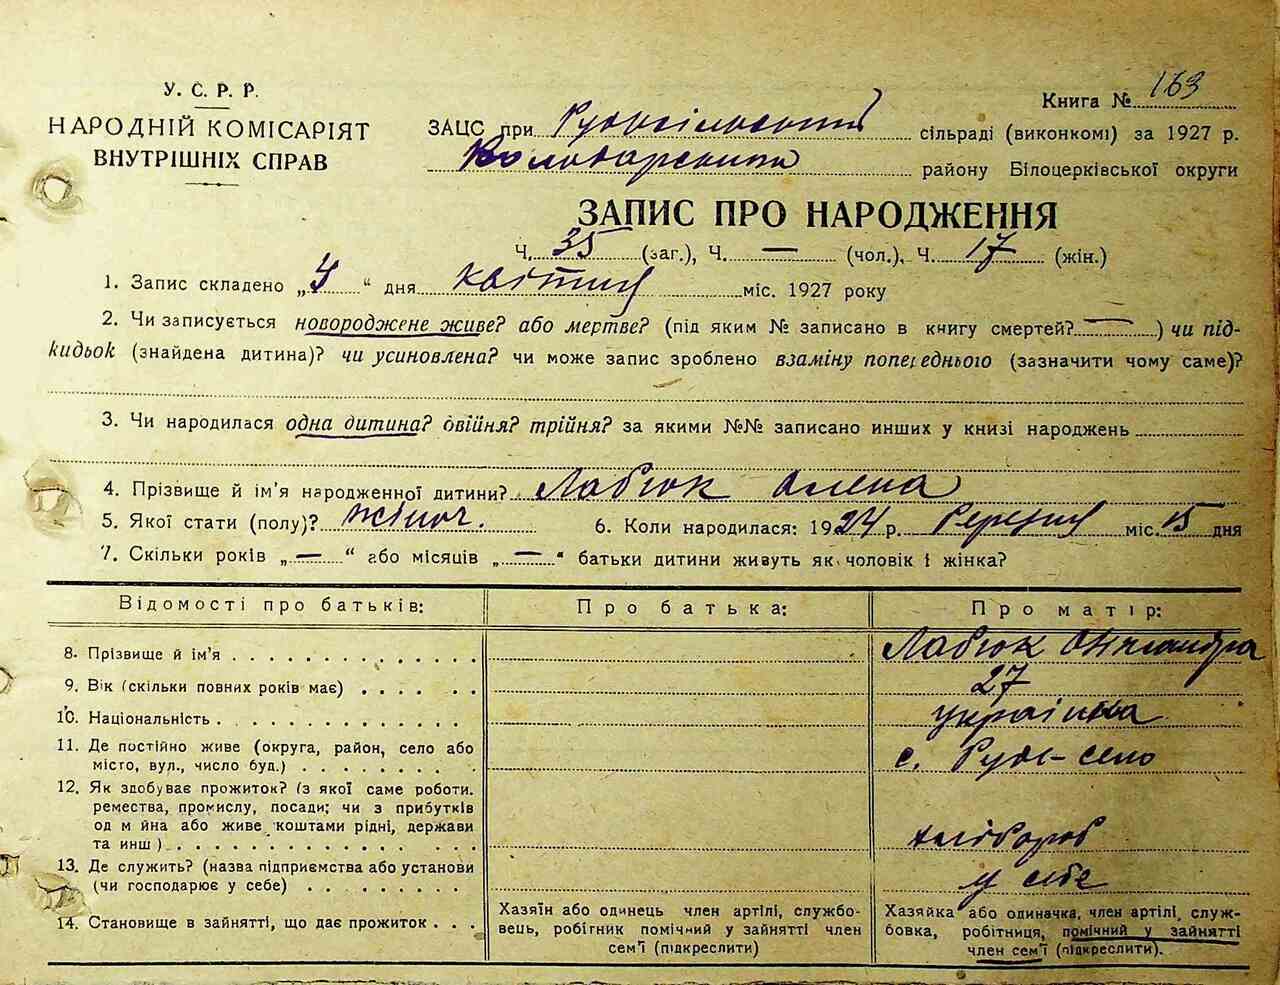 У. С. Р. Р.
НАРОДНІЙ КОМІСАРІЯТ
ВНУТРІШНІХ СПРАВ
Книга № 163
ЗАЦС при Рудосільський сільраді (виконкомі) за 1927 р.
Володарський району Білоцерківської округи
ЗАПИС ПРО НАРОДЖЕННЯ
Ч. 35 (заг.), Ч. — (чол.), Ч. 17 (жін.)
1. Запис складено „4“ дня квітня міс. 1927 року
2. Чи записується новороджене живе? або мертве? (під яким № записано в книгу смертей? — ) чи під-
кидьок (знайдена дитина)? чи усиновлена? чи може запис зроблено взаміну попереднього (зазначити чому саме)?
3. Чи народилася одна дитина? двійня? трійня? за якими №№ записано инших у книзі народжень
4. Прізвище й ім'я народженної дитини? Лабюк Олена
5. Якої стати (полу)? жіноч. 6. Коли народилася: 1924 р. Березня міс. 15 дня
7. Скільки років „—“ або місяців „—“ батьки дитини живуть як чоловік і жінка?
Відомості про батьків: Про батька: Про матір:
8. Прізвище й ім'я Лабюк
9. Вік (скільки повних років має) 27
10. Національність українка
11. Де постійно живе (округа, район, село або
місто, вул., число буд.) с. Руде-село
12. Як здобуває прожиток? (з якої саме роботи.
ремества, промислу, посади; чи з прибутків
од майна або живе коштами рідні, держави
та инш) хлібороб
13. Де служить? (назва підприємства або установи
(чи господарює у себе) у себе
14. Становище в зайнятті, що дає прожиток
Хазяїн або одинець член артілі, службо-
вець, робігник помічний у зайнятті член
сем'ї (підкреслити)
Хазяйка або одиначка, член артілі, служ-
бовка, робітниця, помічний у зайнятті
член сем'ї (підкреслити).